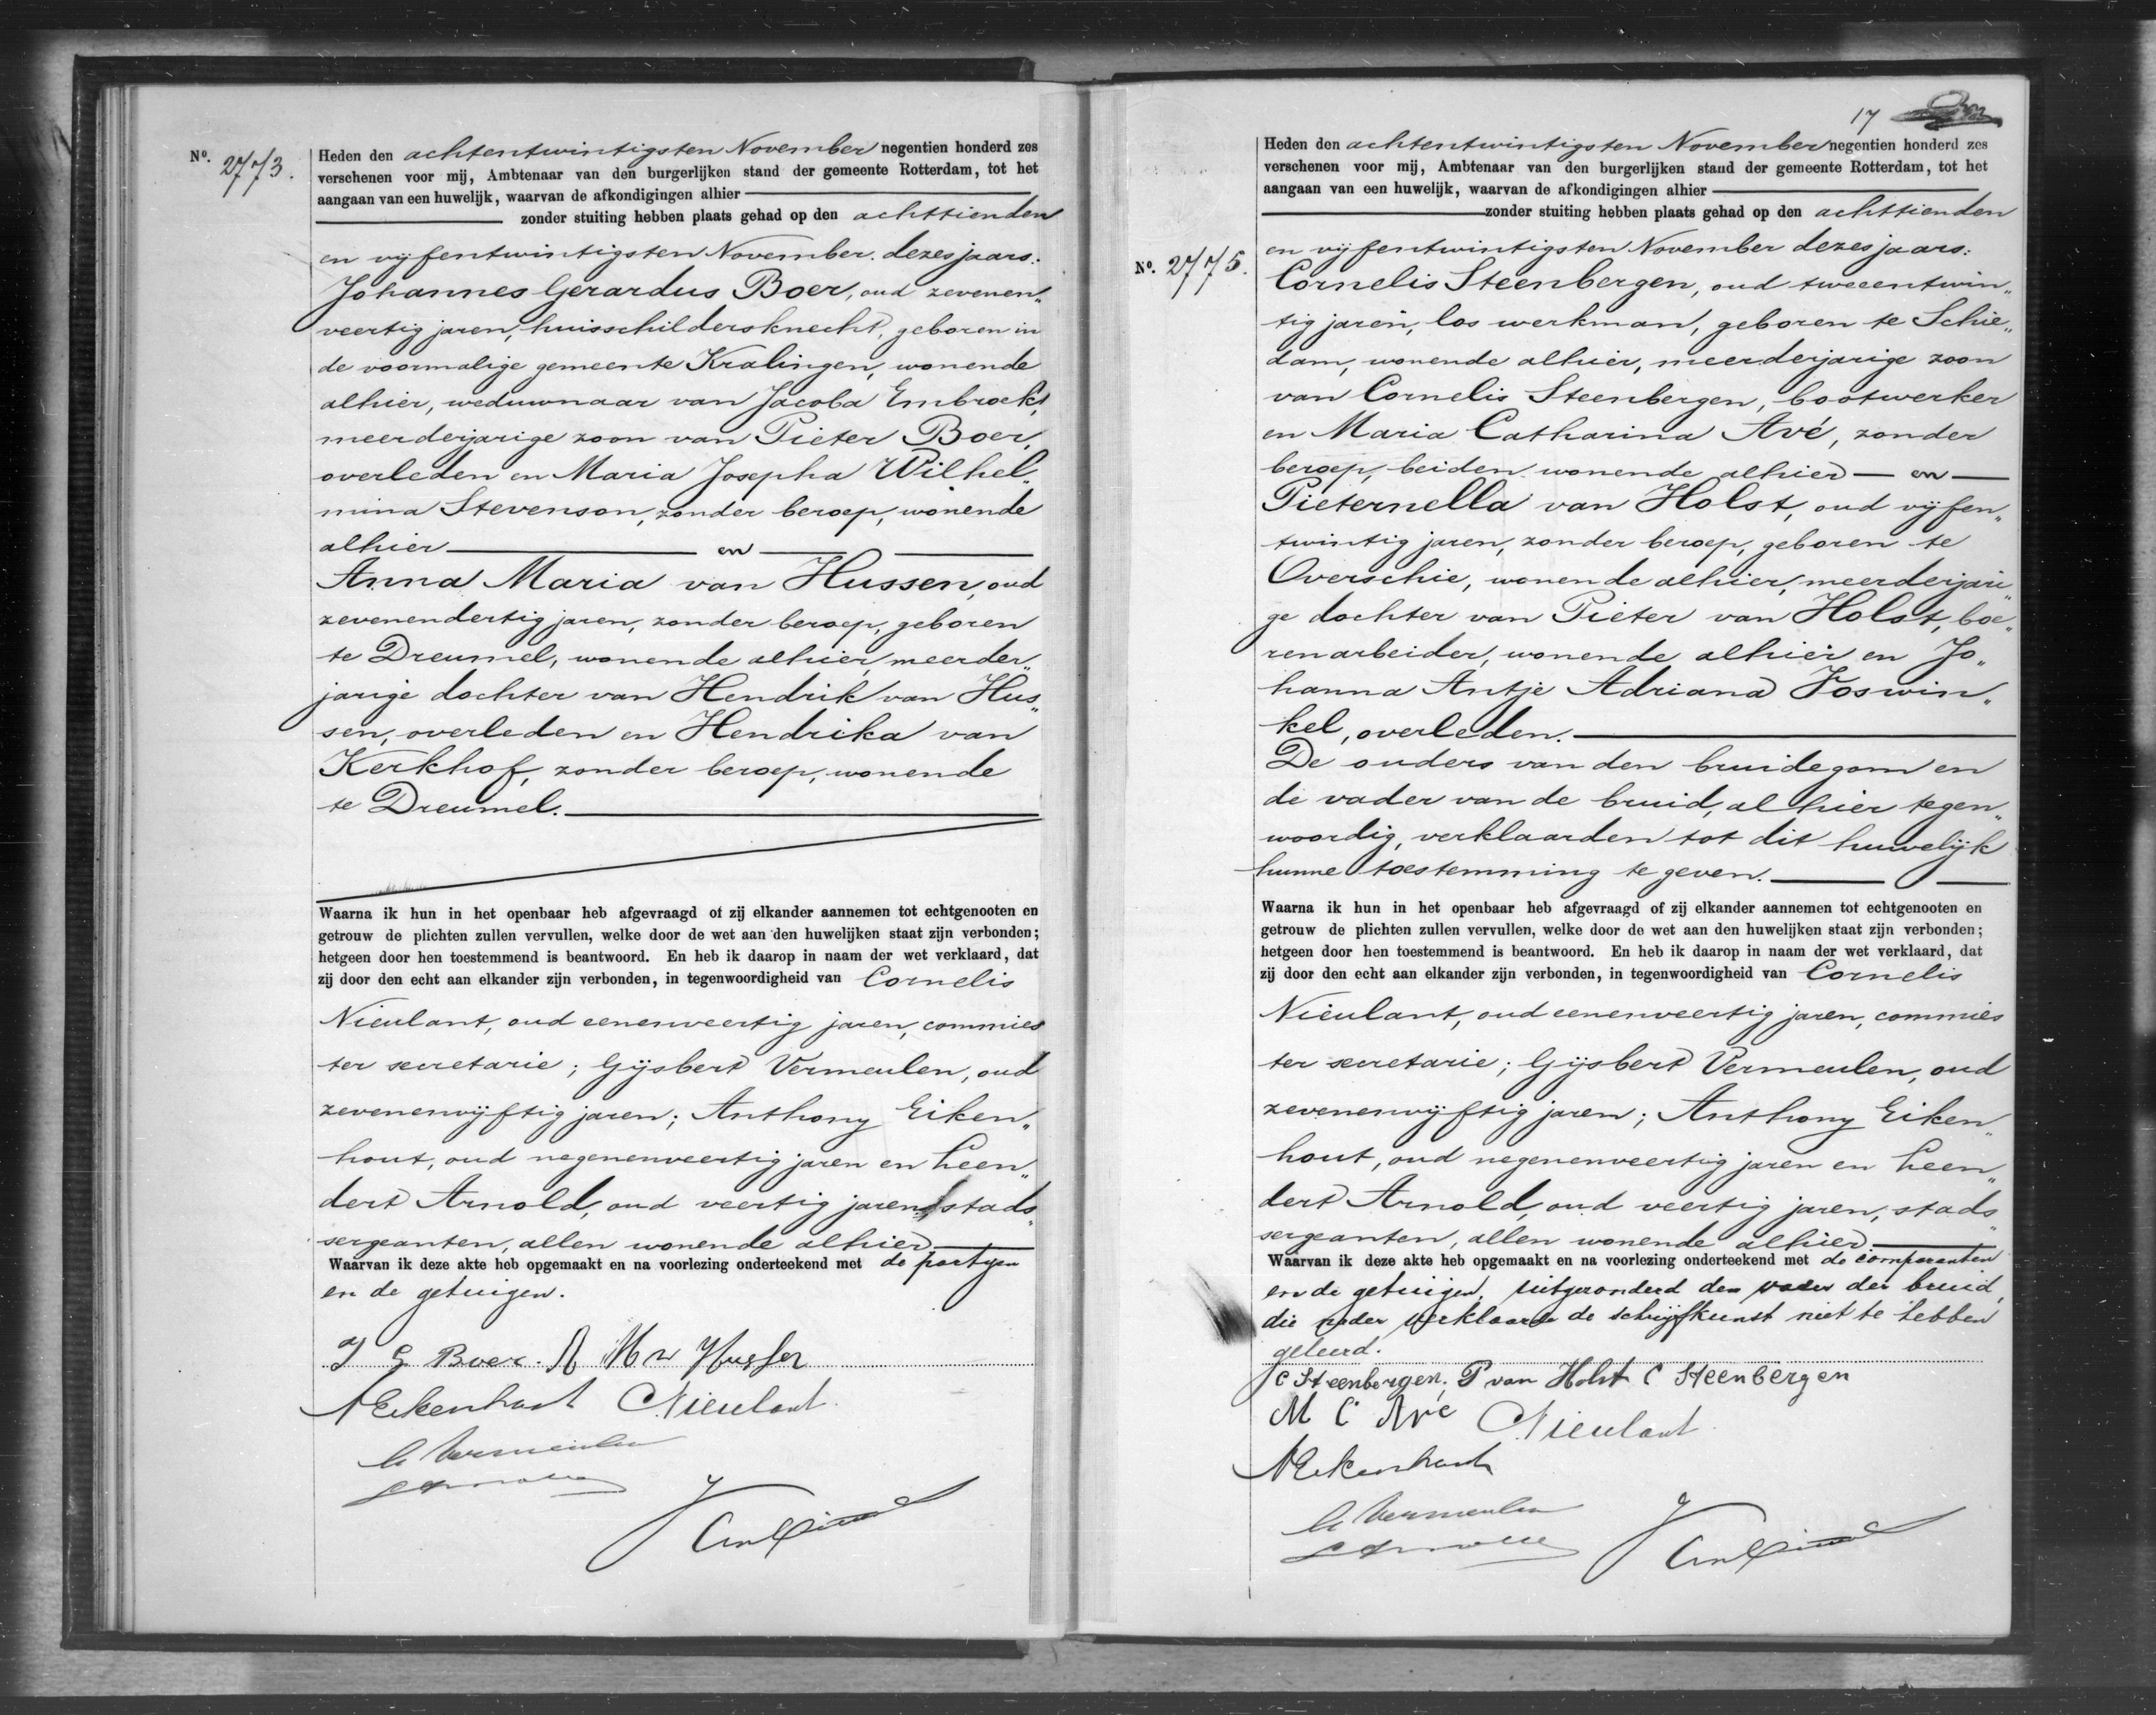 No. 2773.
Heden den achtentwintigsten November negentien honderd zes
verschenen voor mij, Ambtenaar van den burgerlijken stand der gemeente Rotterdam, tot het
aangaan van een huwelijk, waarvan de afkondigingen alhier
zonder stuiting hebben plaats gehad op den achttienden
en vijfentwintigsten November dezes jaars:
Johannes Gerardus Boer, oud zevenen„
veertig jaren, huisschildersknecht, geboren in
de voormalige gemeente Kralingen, wonende
alhier, weduwnaar van Jacoba Embrockt,
meerderjarige zoon van Pieter Boer,
overleden en Maria Josepha Wilhel„
mina Stevenson, zonder beroep, wonende
alhier en
Anna Maria van Hussen, oud
zevenendertig jaren, zonder beroep, geboren
te Dreumel, wonende alhier, meerder„
jarige dochter van Hendrik van Hus„
sen, overleden en Hendrika van
Kerkhof, zonder beroep, wonende
te Dreumel.
Waarna ik hun in het openbaar heb afgevraagd of zij elkander aannemen tot echtgenooten en
getrouw de plichten zullen vervullen, welke door de wet aan den huwelijken staat zijn verbonden;
hetgeen door hen toestemmend is beantwoord. En heb ik daarop in naam der wet verklaard, dat
zij door den echt aan elkander zijn verbonden, in tegenwoordigheid van Cornelis
Nieulant, oud eenenveertig jaren, commies
ter secretarie; Gijsbert Vermeulen, oud
zevenenvijftig jaren; Anthony Eiken„
hout, oud negenenveertig jaren en Leen„
dert Arnold, oud veertig jaren, stads„
sergeanten, allen wonende alhier
Waarvan ik deze akte heb opgemaakt en na voorlezing onderteekend met de partijen
en de getuigen.
J G Boer. A M v Hussen
A Eikenhout CNieulant
G Vermeulen
L Arnold
17
No. 2775.
Heden den achtentwintigsten November negentien honderd zes
verschenen voor mij, Ambtenaar van den burgerlijken stand der gemeente Rotterdam, tot het
aangaan van een huwelijk, waarvan de afkondigingen alhier
zonder stuiting hebben plaats gehad op den achttienden
en vijfentwintigsten November dezes jaars:
Cornelis Steenbergen, oud tweeentwin„
tig jaren, los werkman, geboren te Schie„
dam, wonende alhier, meerderjarige zoon
van Cornelis Steenbergen, bootwerker
en Maria Catharina Avé, zonder
beroep, beiden wonende alhier en
Pieternella van Holst, oud vijfen„
twintig jaren, zonder beroep, geboren te
Overschie, wonende alhier, meerderjari„
ge dochter van Pieter van Holst, boe„
renarbeider, wonende alhier en Jo„
hanna Antje Adriana Voswin„
kel, overleden.
De ouders van den bruidegom en
de vader van de bruid, alhier tegen„
woordig, verklaarden tot dit huwelijk
hunne toestemming te geven.
Waarna ik hun in het openbaar heb afgevraagd of zij elkander aannemen tot echtgenooten en
getrouw de plichten zullen vervullen, welke door de wet aan den huwelijken staat zijn verbonden;
hetgeen door hen toestemmend is beantwoord. En heb ik daarop in naam der wet verklaard, dat
zij door den echt aan elkander zijn verbonden, in tegenwoordigheid van Cornelis
Nieulant, oud eenenveertig jaren, commies
ter secretarie; Gijsbert Vermeulen, oud
zevenenvijftig jaren; Anthony Eiken„
hout, oud negenenveertig jaren en Leen„
dert Arnold, oud veertig jaren, stads„
sergeanten, allen wonende alhier
Waarvan ik deze akte heb opgemaakt en na voorlezing onderteekend met de comparanten
en de getuigen, uitgezonderd den vader der bruid,
die nader verklaarde de schrijfkunst niet te hebben
geleerd.
C Steenbergen. P van Holst C Steenbergen
M C Avé CNieulant
A Eikenhout
G Vermeulen
L Arnold